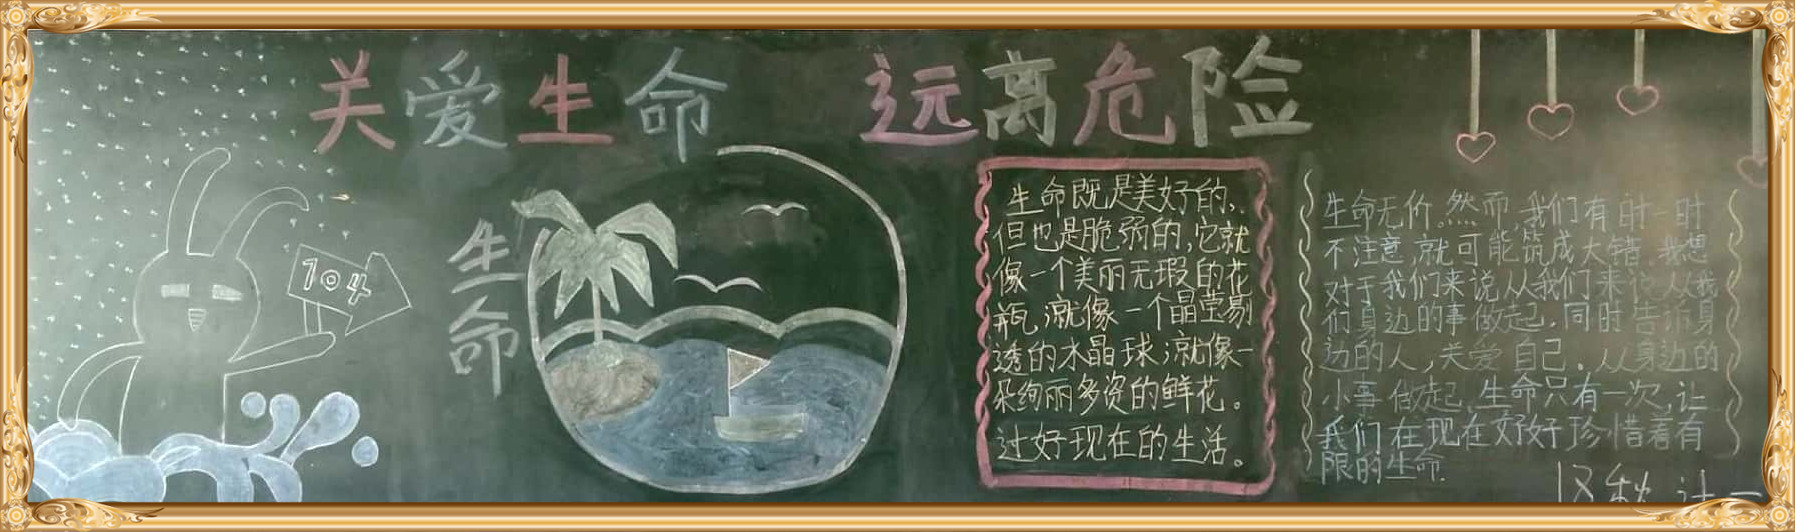 关爱生命 远离危险
104
生命
生命既是美好的，
但也是脆弱的，它就
像一个美丽无瑕的花
瓶；就像一个晶莹剔
透的水晶球；就像一
朵绚丽多姿的鲜花。
过好现在的生活。
生命无价。然而，我们有时一时
不注意，就可能筑成大错。我想
对于我们来说从我们来说从我
们身边的事做起。同时告诉身
边的人，关爱自己。从身边的
小事做起，生命只有一次，让
我们在现在好好珍惜着有
限的生命.
18秋 计一